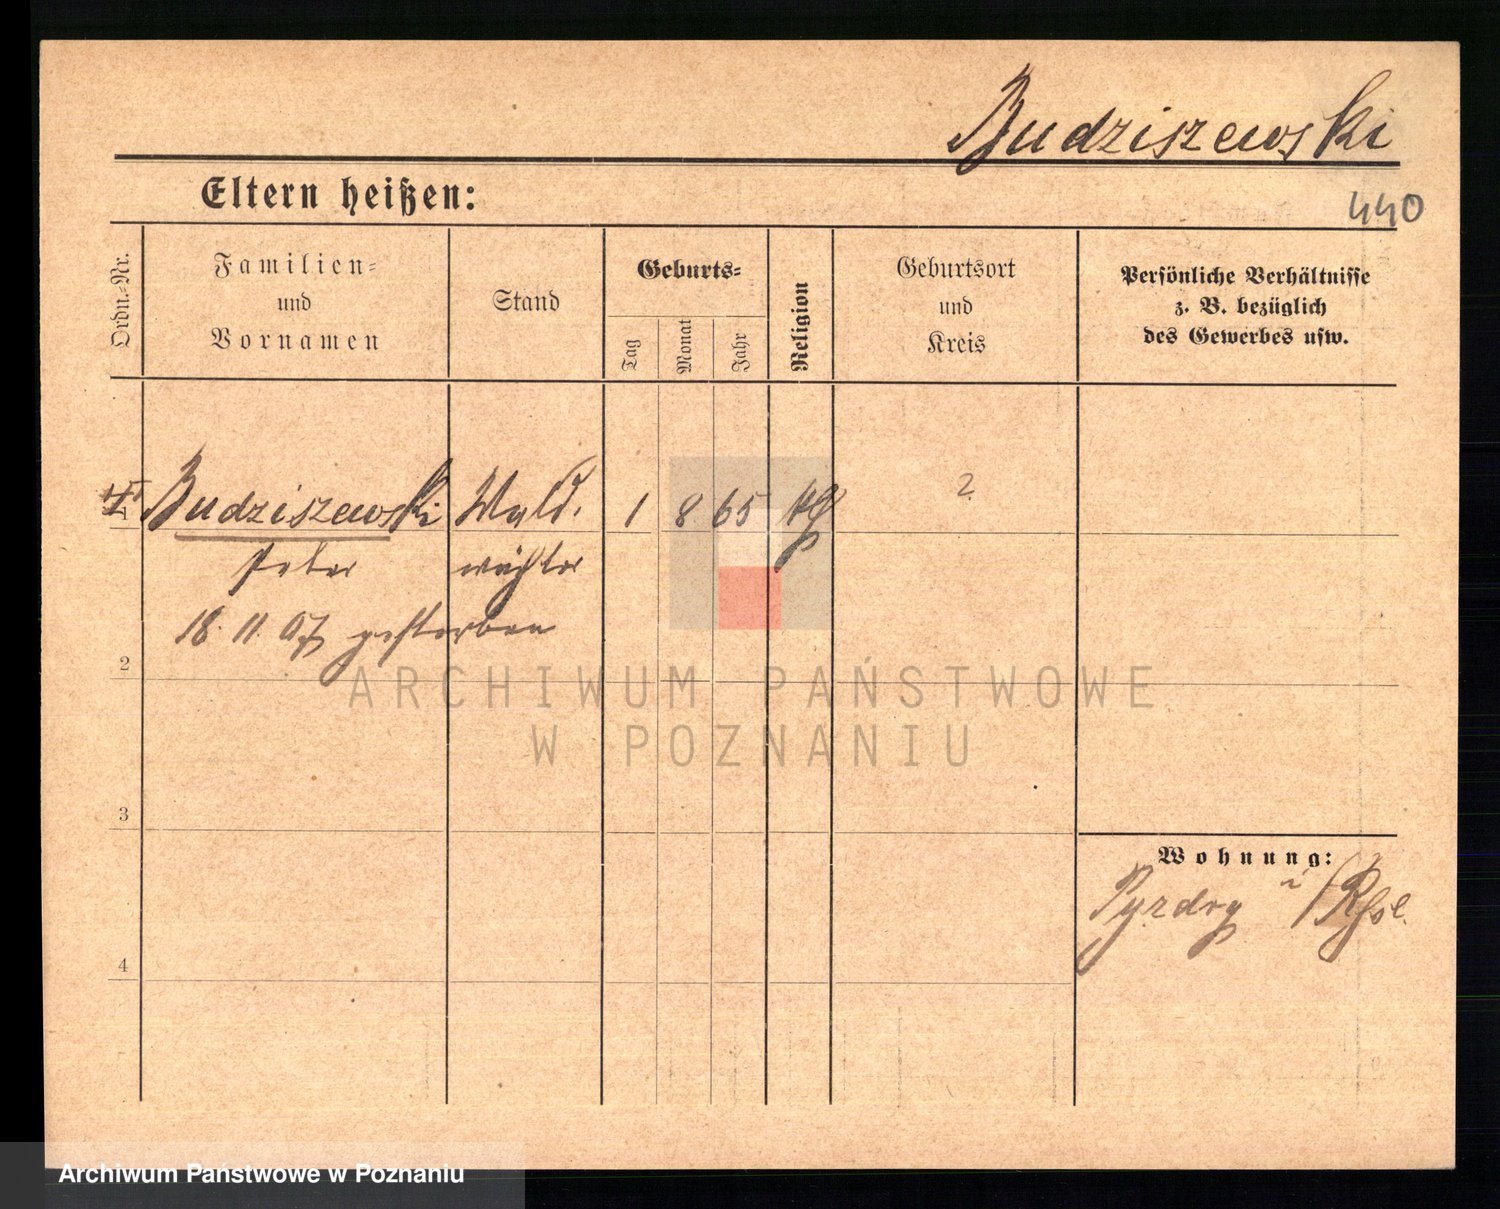 Budziszewski
Eltern heißen:
440
Ordn.-Nr.
Familien-
und
Vornamen
Stand
Geburts-
Tag
Monat
Jahr
Religion
Geburtsort
und
Kreis
Persönliche Verhältnisse
z. B. bezüglich
des Gewerbes usw.
1 Budziszewski Wald. 1 8 65 ?
Peter wächter
18. 11. 07 gestorben
2
3
4
Wohnung:
Pyzdry
ARCHIWUM PAŃSTWOWE
W POZNANIU
Archiwum Państwowe w Poznaniu